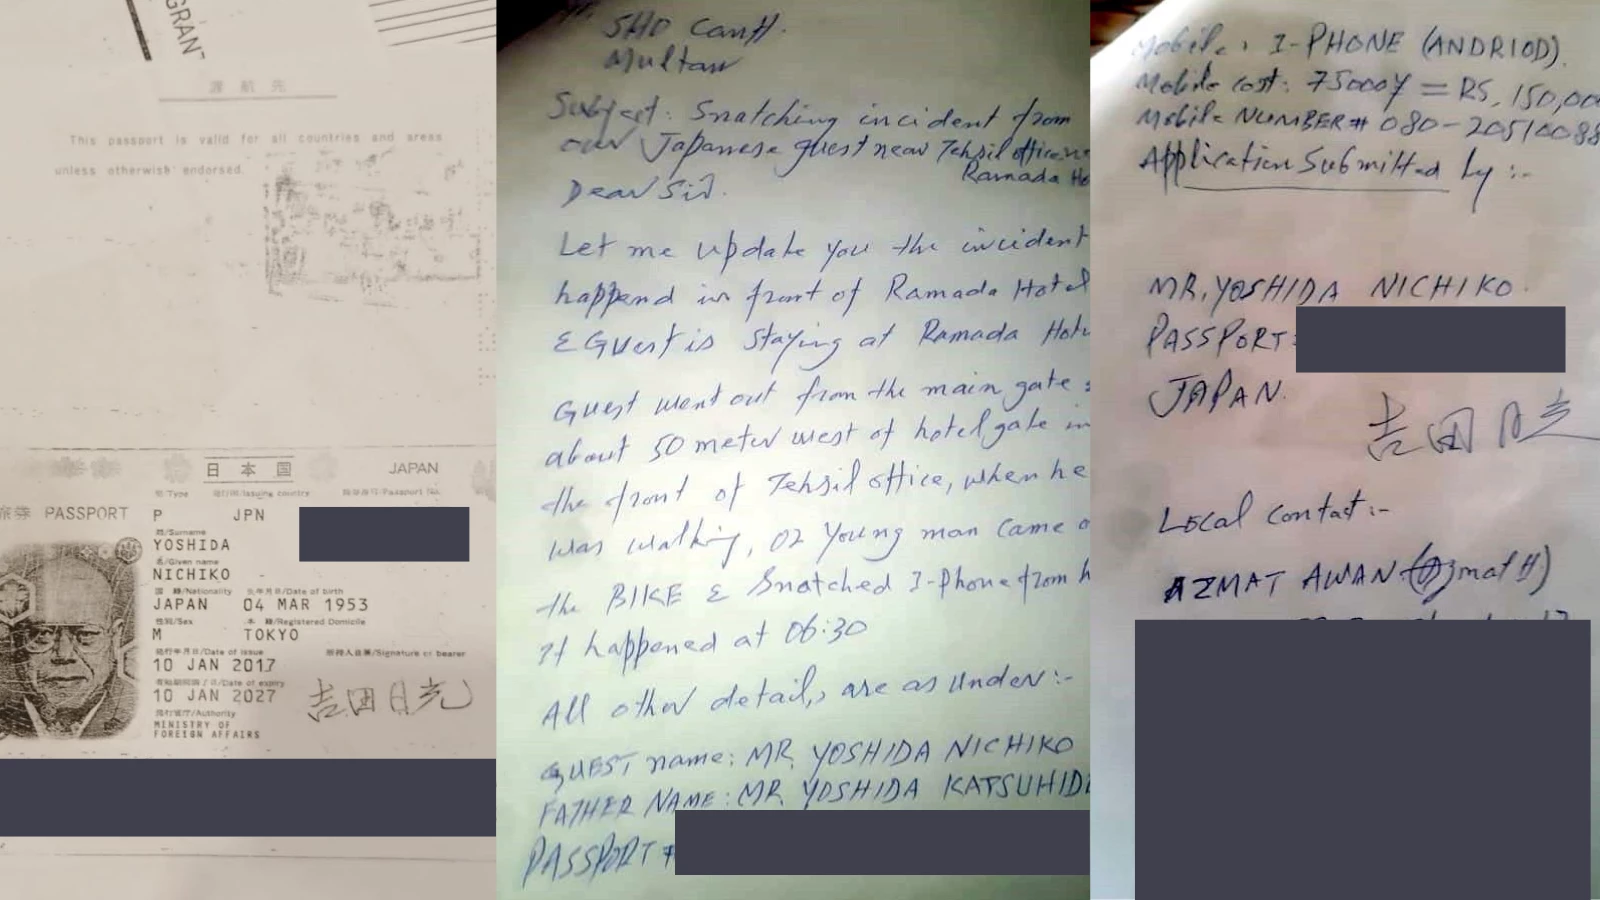 GRANT
渡航先
This passport is valid for all countries and areas
unless otherwise endorsed.
日本国 JAPAN
型/Type 発行国/Issuing country 旅券番号/Passport No.
旅券 PASSPORT P JPN
姓/Surname
YOSHIDA
名/Given name
NICHIKO
国籍/Nationality 生年月日/Date of birth
JAPAN 04 MAR 1953
性別/Sex 本籍/Registered Domicile
M TOKYO
発行年月日/Date of issue 所持人自署/Signature of bearer
10 JAN 2017
有効期間満了日/Date of expiry
10 JAN 2027
吉田日光
発行官庁/Authority
MINISTRY OF
FOREIGN AFFAIRS
SHO Cantt.
Multan
Subject: Snatching incident from
our Japanese guest near Tehsil office
Ramada Ho
Dear Sir.
Let me update you the incident
happend in front of Ramada Hotel
& Guest is staying at Ramada Hot
Guest went out from the main gate
about 50 meter west of hotel gate in
the front of Tehsil office, when he
was walking, 02 young man came o
the BIKE & Snatched I-Phone from h
It happened at 06:30
All other detail, are as under:-
GUEST name: MR. YOSHIDA NICHIKO
FATHER NAME: MR YOSHIDA KATSUHID
PASSPORT #
Mobile: I-PHONE (ANDRIOD).
Mobile cost: 75000Y = RS, 150,00
Mobile NUMBER # 080-20510088
Application Submitted by :-
MR, YOSHIDA NICHIKO.
PASSPORT:
JAPAN.
吉田日光
Local contact:-
AZMAT AWAN (Azmat H)